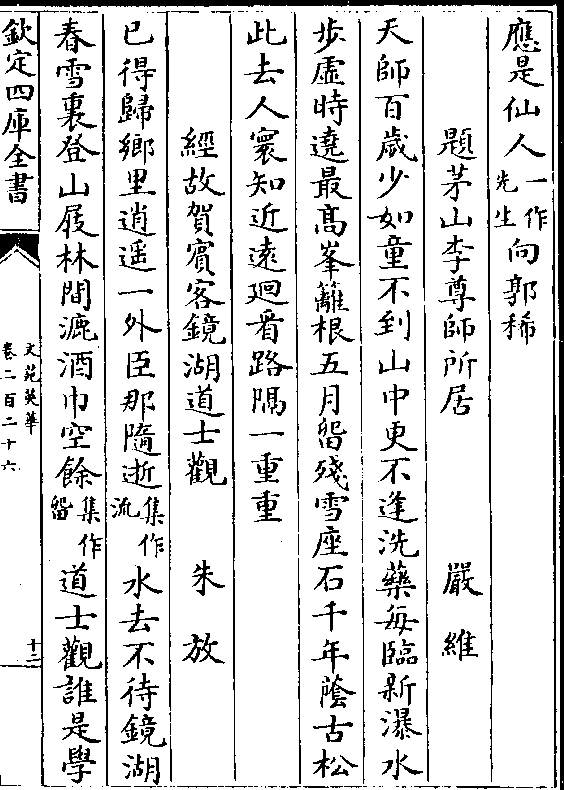 應是仙人一作先生向郭稀
題茅山李尊師所居　嚴維
天師百歲少如童不到山中更不逢洗藥每臨新瀑水
步虛時遶最高峯籬根五月留殘雪座石千年蔭古松
此去人寰知近遠廻看路隅一重重
經故賀賓客鏡湖道士觀　朱放
已得歸鄉里逍遙一外臣那隨逝集作流水去不待鏡湖
春雪裏登山屐林間漉酒巾空餘集作留道士觀誰是學
欽定四庫全書
文苑英華
卷二百二十六
十三